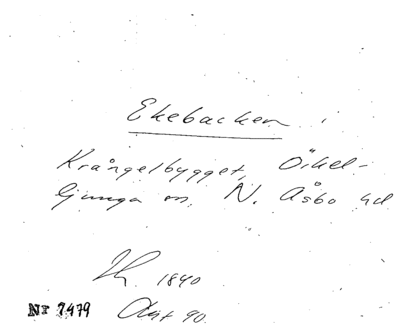 Ekebacken i
Krångelbygget, Örkel-
ljunga sn, N. Åsbo hd
1840
Nr 7479 Avst 90